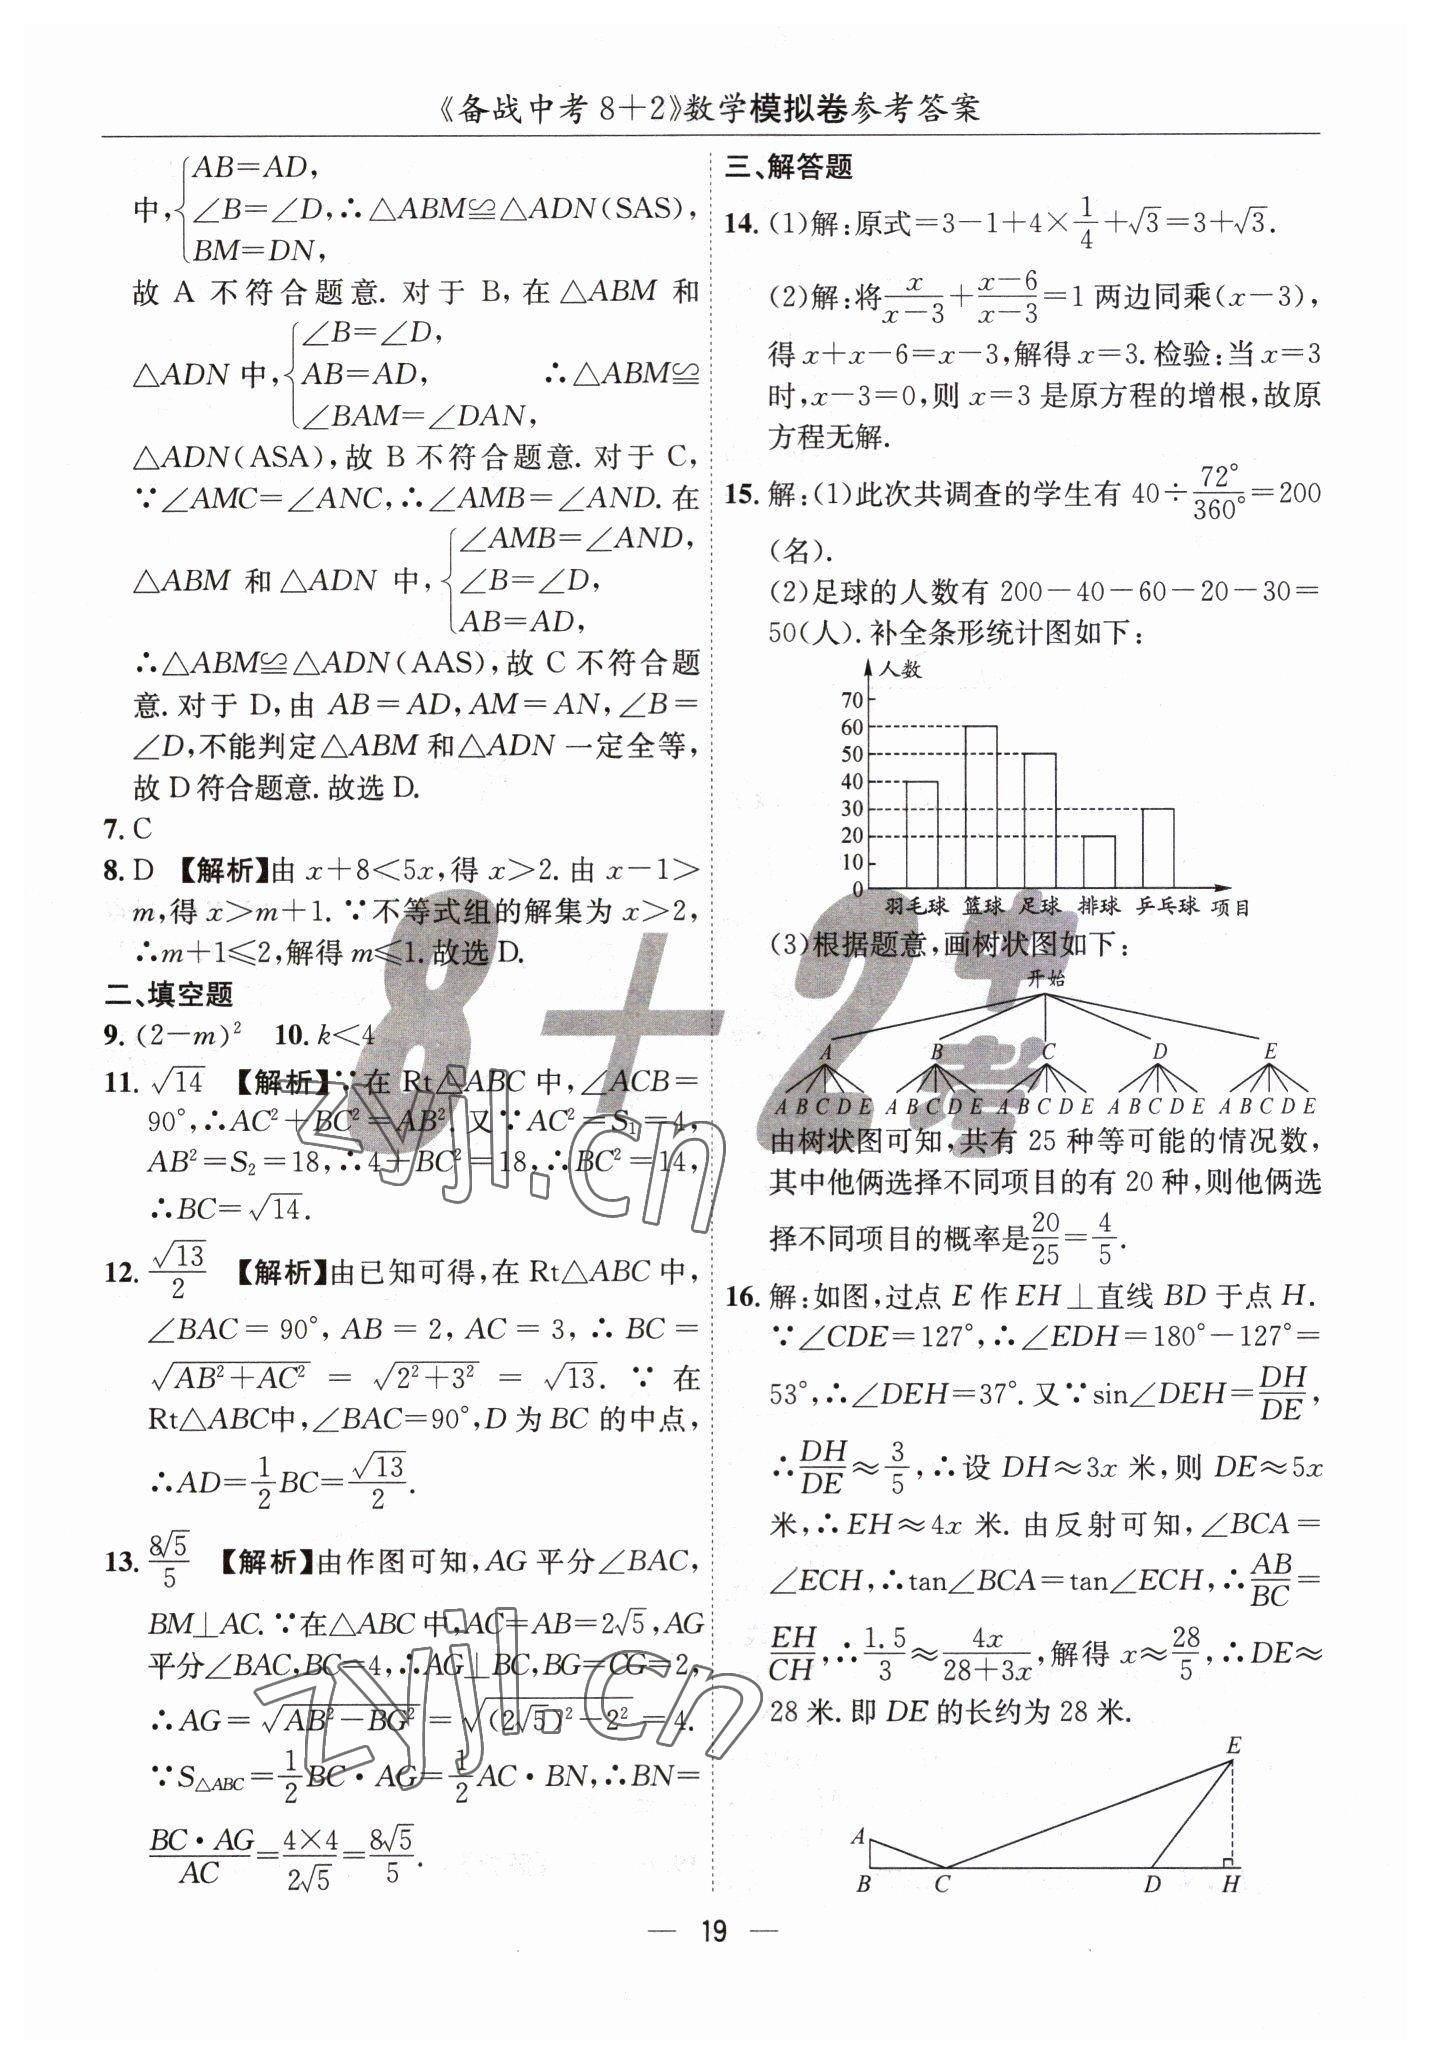 《备战中考8+2》数学模拟卷参考答案
中,{AB=AD, ∠B=∠D, BM=DN, ∴△ABM≌△ADN(SAS),
故 A 不符合题意. 对于 B,在△ABM 和
△ADN 中,{∠B=∠D, AB=AD, ∠BAM=∠DAN, ∴△ABM≌
△ADN(ASA),故 B 不符合题意. 对于 C,
∵∠AMC=∠ANC,∴∠AMB=∠AND. 在
△ABM 和△ADN 中,{∠AMB=∠AND, ∠B=∠D, AB=AD,
∴△ABM≌△ADN(AAS),故 C 不符合题
意. 对于 D,由 AB=AD,AM=AN,∠B=
∠D,不能判定△ABM 和△ADN 一定全等,
故 D 符合题意. 故选 D.
7. C
8. D 【解析】由 x+8<5x,得 x>2. 由 x-1>
m,得 x>m+1. ∵不等式组的解集为 x>2,
∴m+1⩽2,解得 m⩽1. 故选 D.
二、填空题
9. (2-m)² 10. k<4
11. √14 【解析】∵在 Rt△ABC 中,∠ACB=
90°,∴AC²+BC²=AB². 又∵AC²=S₁=4,
AB²=S₂=18,∴4+BC²=18,∴BC²=14,
∴BC=√14.
12. √13/2 【解析】由已知可得,在 Rt△ABC 中,
∠BAC=90°, AB=2, AC=3, ∴BC=
√(AB²+AC²) = √(2²+3²) = √13. ∵ 在
Rt△ABC中,∠BAC=90°,D 为 BC 的中点,
∴AD=1/2 BC=√13/2.
13. 8√5/5 【解析】由作图可知,AG 平分∠BAC,
BM⊥AC. ∵在△ABC 中,AC=AB=2√5,AG
平分∠BAC,BC=4,∴AG⊥BC,BG=CG=2,
∴AG=√(AB²-BG²)=√((2√5)²-2²)=4.
∵S△ABC=1/2 BC·AG=1/2 AC·BN,∴BN=
BC·AG/AC=4×4/2√5=8√5/5.
三、解答题
14. (1)解:原式=3-1+4×1/4+√3=3+√3.
(2)解:将x/(x-3)+(x-6)/(x-3)=1 两边同乘(x-3),
得 x+x-6=x-3,解得 x=3. 检验:当 x=3
时,x-3=0,则 x=3 是原方程的增根,故原
方程无解.
15. 解:(1)此次共调查的学生有 40÷72°/360°=200
(名).
(2)足球的人数有 200-40-60-20-30=
50(人). 补全条形统计图如下:
人数
70
60
50
40
30
20
10
0
羽毛球 篮球 足球 排球 乒乓球 项目
(3)根据题意,画树状图如下:
开始
A B C D E
A B C D E A B C D E A B C D E A B C D E A B C D E
由树状图可知,共有 25 种等可能的情况数,
其中他俩选择不同项目的有 20 种,则他俩选
择不同项目的概率是20/25=4/5.
16. 解:如图,过点 E 作 EH⊥直线 BD 于点 H.
∵∠CDE=127°,∴∠EDH=180°-127°=
53°,∴∠DEH=37°. 又∵sin∠DEH=DH/DE,
∴DH/DE≈3/5,∴设 DH≈3x 米,则 DE≈5x
米,∴EH≈4x 米. 由反射可知,∠BCA=
∠ECH,∴tan∠BCA=tan∠ECH,∴AB/BC=
EH/CH,∴1.5/3≈4x/(28+3x),解得 x≈28/5,∴DE≈
28 米. 即 DE 的长约为 28 米.
E
A
B C D H
— 19 —
8+2 中考
zyjl.cn
zyjl.cn